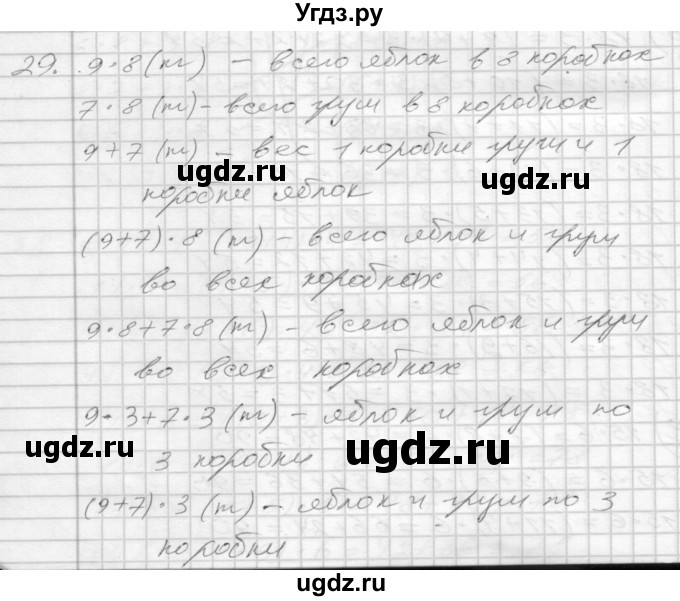 Угдз.ру
29. 9·8 (кг) – всего яблок в 8 коробках
7·8 (кг) – всего груш в 8 коробках
9+7 (кг) – вес 1 коробки груш и 1
коробки яблок
ugdz.ru ugdz.ru
(9+7)·8 (кг) – всего яблок и груш
во всех коробках
9·8+7·8 (кг) – всего яблок и груш
во всех коробках
9·3+7·3 (кг) – яблок и груш по
3 коробки
ugdz.ru ugdz.ru
(9+7)·3 (кг) – яблок и груш по 3
коробки
ugdz.ru